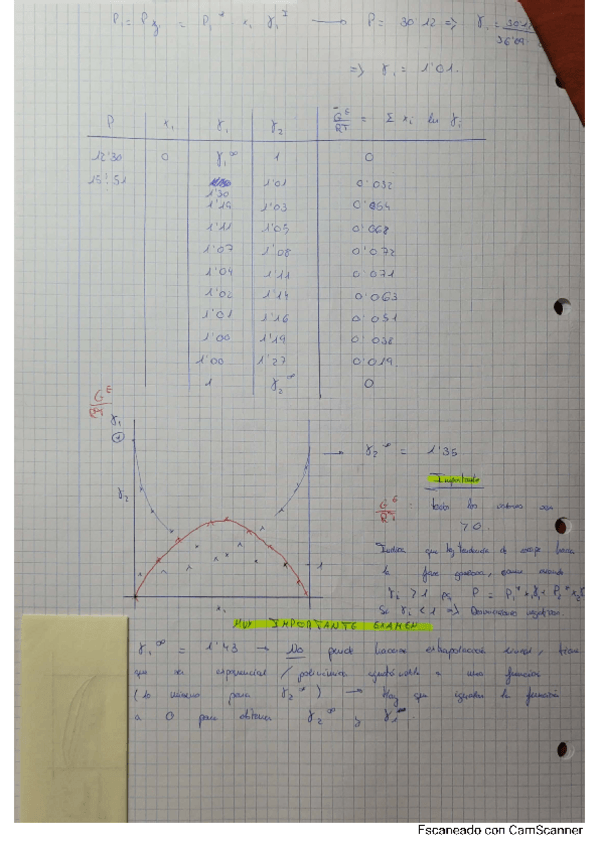 P₁ = P y = P₁* x₁ γ₁ → P = 30'12 => γ₁ =
=> γ₁ = 1'01.
P x₁ γ₁ γ₂ G^E/RT = Σ xᵢ ln γᵢ
12'30 0 γ₁^∞ 1 0
15'51 1'30 1'01 0'032
1'19 1'03 0'054
1'11 1'05 0'068
1'07 1'08 0'072
1'04 1'11 0'071
1'02 1'14 0'063
1'01 1'16 0'051
1'00 1'19 0'038
1'00 1'27 0'019
1 γ₂^∞ 0
G^E/RT
γ₁
γ₂ → γ₂^∞ = 1'35
Importante
G^E/RT : todos los valores son
> 0.
Indica que hay tendencia de escape hacia
la fase gaseosa, como cuando
γ₂ > 1 pq P = P₁* x₁ γ₁ + P₂* x₂ γ
Si γᵢ < 1 => Desviaciones negativas.
1
x₁
MUY IMPORTANTE EXAMEN
γ₁^∞ = 1'43 → No puede hacerse extrapolación lineal, tiene
que ser exponencial / polinómica ajustable a una función
(lo mismo para γ₂^∞) → Hay que igualar la función
a 0 para obtener γ₂^∞ y γ₁^∞.
Escaneado con CamScanner